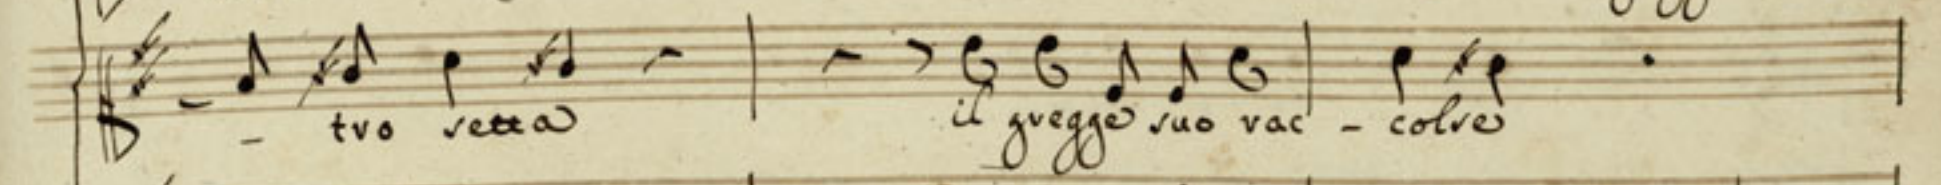 - tro setta il gregge suo rac - colse